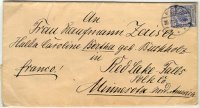 An
Frau Kaufmann Zauser
Hulda Caroline Bertha geb. Buchholz
in
franco!
Red Lake Falls
Polk Co.
Minnesota Nord Amerika